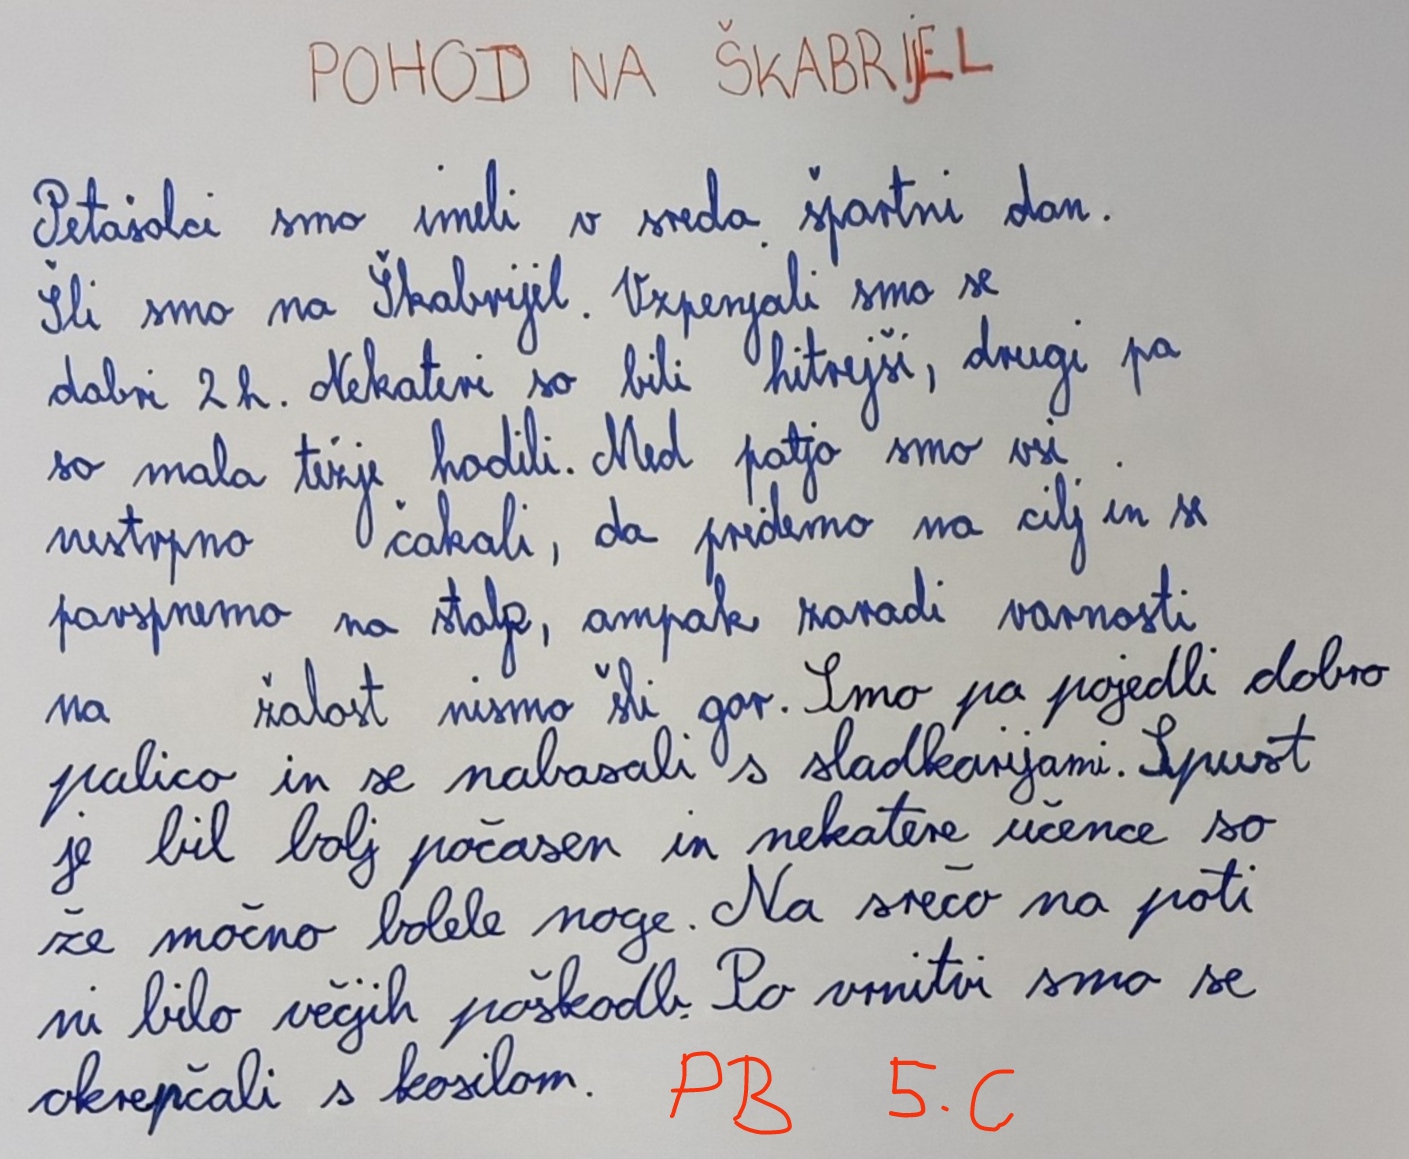 POHOD NA ŠKABRIJEL
Petašolci smo imeli v sredo športni dan.
Šli smo na Škabrijel. Vzpenjali smo se
dobri 2 h. Nekateri so bili hitrejši, drugi pa
so malo težje hodili. Med potjo smo vsi
nestrpno čakali, da pridemo na cilj in se
povspnemo na stolp, ampak zaradi varnosti
na žalost nismo šli gor. Smo pa pojedli dobro
malico in se nabasali s sladkarijami. Spust
je bil bolj počasen in nekatere učence so
že močno bolele noge. Na srečo na poti
ni bilo večjih poškodb. Po vrnitvi smo se
okrepčali s kosilom. PB 5.C